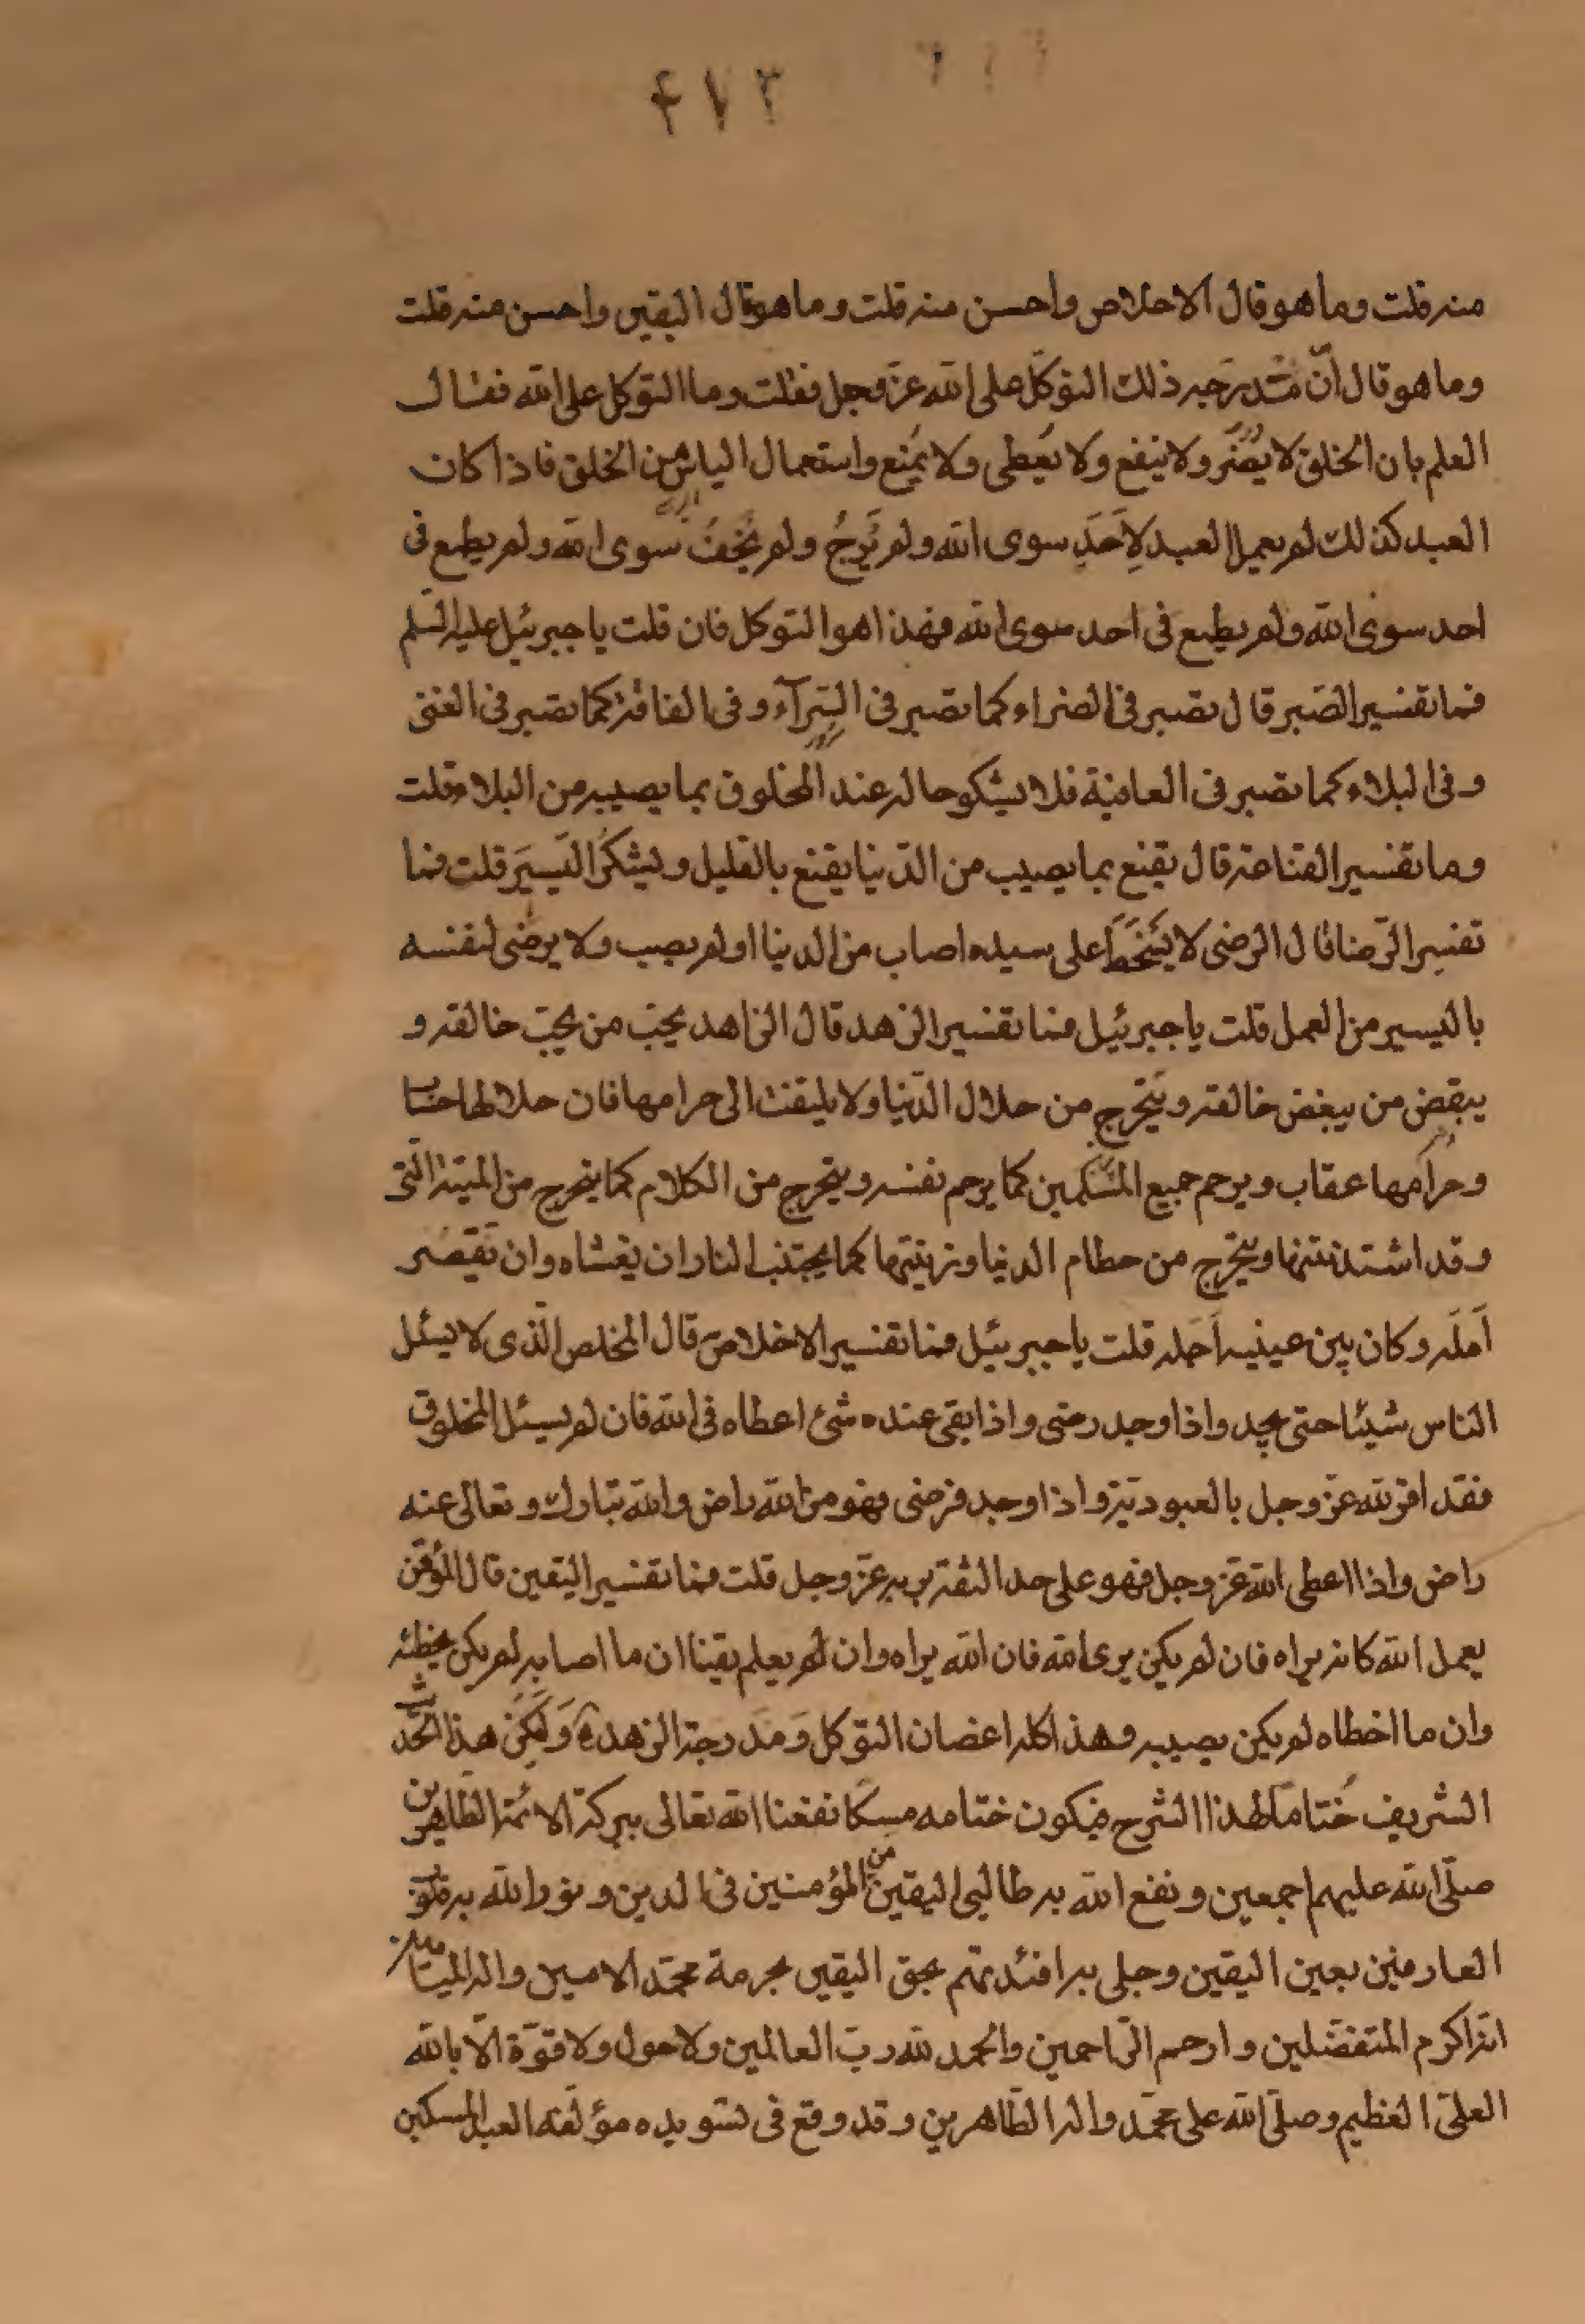 ۴۷۳
منه قلت وما هو قال الاخلاص واحسن منه قلت وما هو قال اليقين واحسن منه قلت
وما هو قال انّ مدرجه ذلك التوكّل على الله عزّ وجل فقلت وما التوكل على الله فقال
العلم بان الخلق لا يضرّ ولا ينفع ولا يعطى ولا يمنع واستعمال الياس من الخلق فاذا كان
العبد كذلك لم يعمل العبد لِاَحَدٍ سوى الله ولم يَرجُ ولم يخفُ سوى الله ولم يطمع فى
احد سوى الله ولم يطمع فى احد سوى الله فهذا هو التوكل فان قلت يا جبرئيل عليه السّلم
فما تفسير الصّبر قال تصبر فى الضراء كما تصبر فى السّرآء وفى الفاقة كما تصبر فى الغنى
وفى البلاء كما تصبر فى العافية فلا يشكو حاله عند المخلوق بما يصيبه من البلاء قلت
وما تفسير القناعة قال يقنع بما يصيب من الدّنيا يقنع بالقليل ويشكرُ اليَسيرَ قلت فما
تفسير الرّضا قال الرضى لا يسخط على سيده اصاب من الدنيا او لم يصب ولا يرضى لنفسه
باليسير من العمل قلت يا جبرئيل فما تفسير الزهد قال الزاهد يحبّ من يحبّ خالقه و
يبغض من يبغض خالقه ويتحرج من حلال الدّنيا ولا يلتفت الى حرامها فان حلالها حساب
وحرامها عقاب ويرحم جميع المسلمين كما يرحم نفسه ويتحرج من الكلام كما يتحرج من الميتة الّتى
وقد اشتد نتنها ويتحرج من حطام الدنيا وزينتها كما يجتنب النار ان يغشاه وان يَقصر
اَملَه وكان بين عينيه اَجَله قلت يا جبرئيل فما تفسير الاخلاص قال المخلص الّذى لا يسئل
الناس شيئا حتى يجد واذا وجد رضى واذا بقى عنده شئ اعطاه فى الله فان لم يسئل المخلوق
فقد اقرّ لله عزّ وجل بالعبوديّة واذا وجد فرضى فهو من الله راض والله تبارك وتعالى عنه
راض واذا اعطى الله عزّ وجل فهو على حد الثقة بربه عزّ وجل قلت فما تفسير اليقين قال المؤقن
يعمل الله كانه يراه فان لم يكن يرى الله فان الله يراه وان لم يعلم يقينا ان ما اصابه لم يكن ليخطئه
وان ما اخطاه لم يكن يصيبه وهذا كله اغصان التوّكل وَمَدرجة الزهد وَليَكُن هذا الحَديث
الشريف خُتاماً لهذا الشرح فيكون ختامه مسكا نفعنا الله تعالى ببركة الائمّة الطّاهرين
صلّى الله عليهم اجمعين ونفع الله به طالبى اليقين من المؤمنين فى الدين ونوّر الله به قلوب
العارفين بعين اليقين وجلى به افئدتهم بحق اليقين بحرمة محمّد الامين واله الميامين
انّه اكرم المتفضّلين وارحم الرّاحمين والحمد لله ربّ العالمين ولا حول ولا قوّة الّا بالله
العلىّ العظيم وصلّى الله على محمّد واله الطّاهرين وقد وقع فى تسويده مؤلّفه العبد المسكين